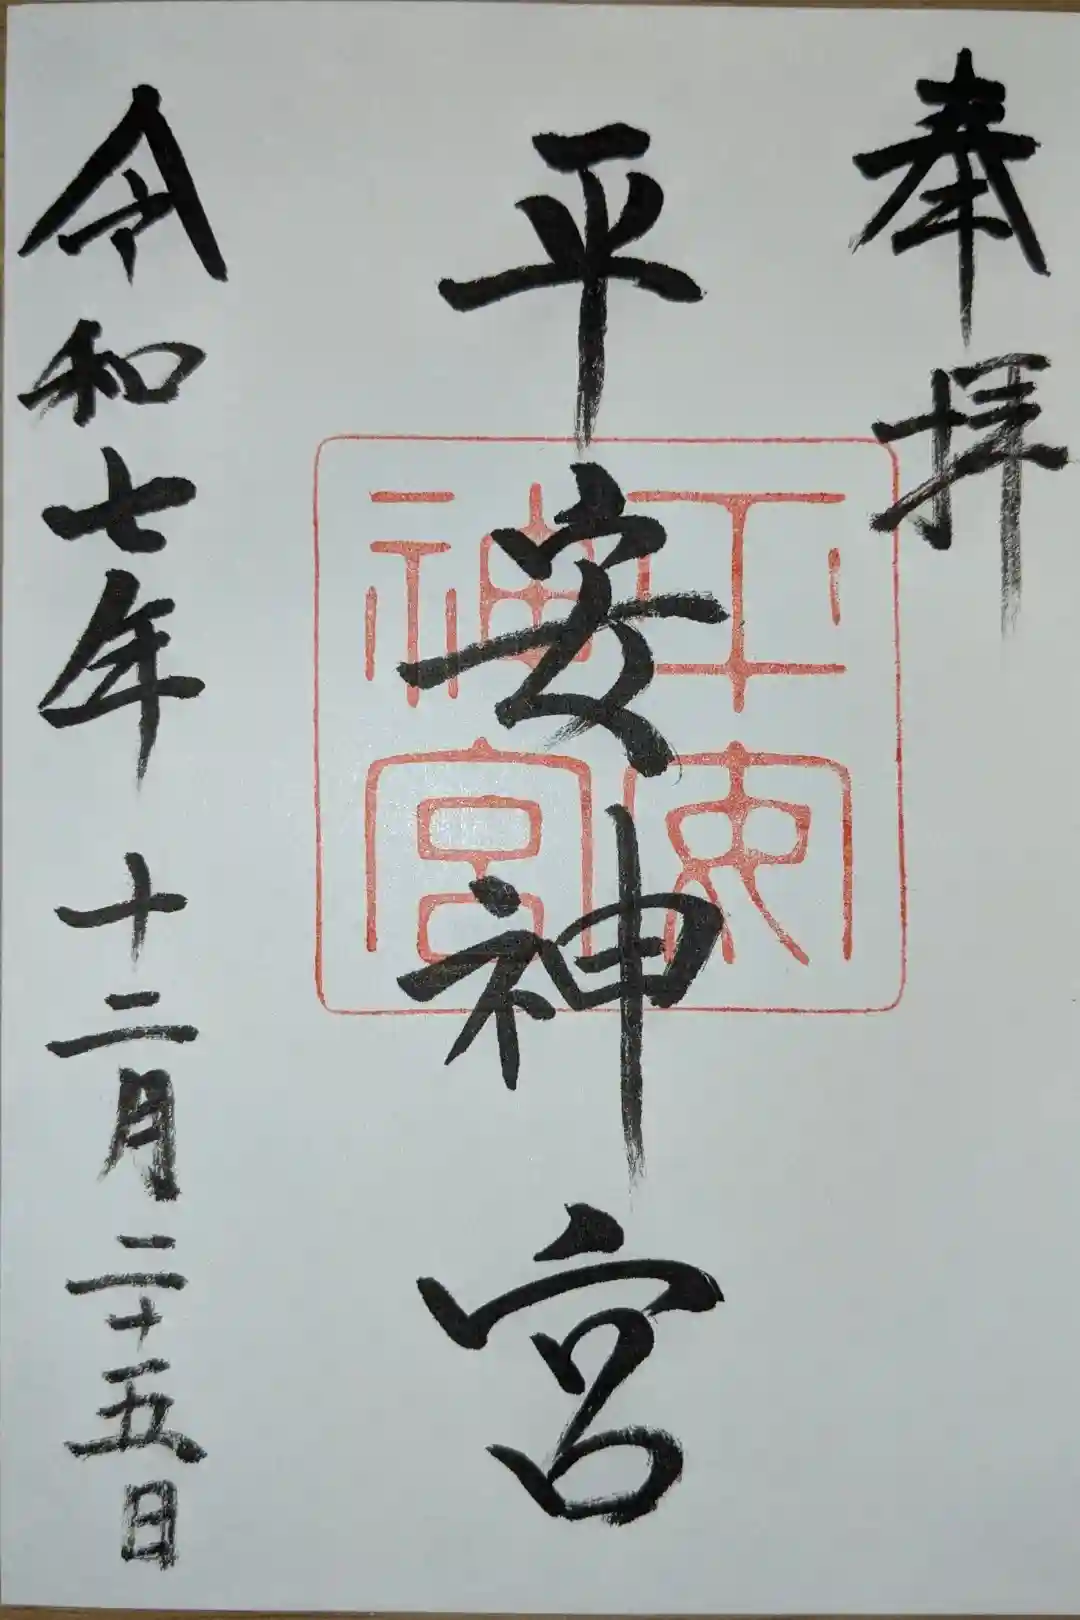 奉拝
平安神宮
平安神宮
令和七年 十二月二十五日